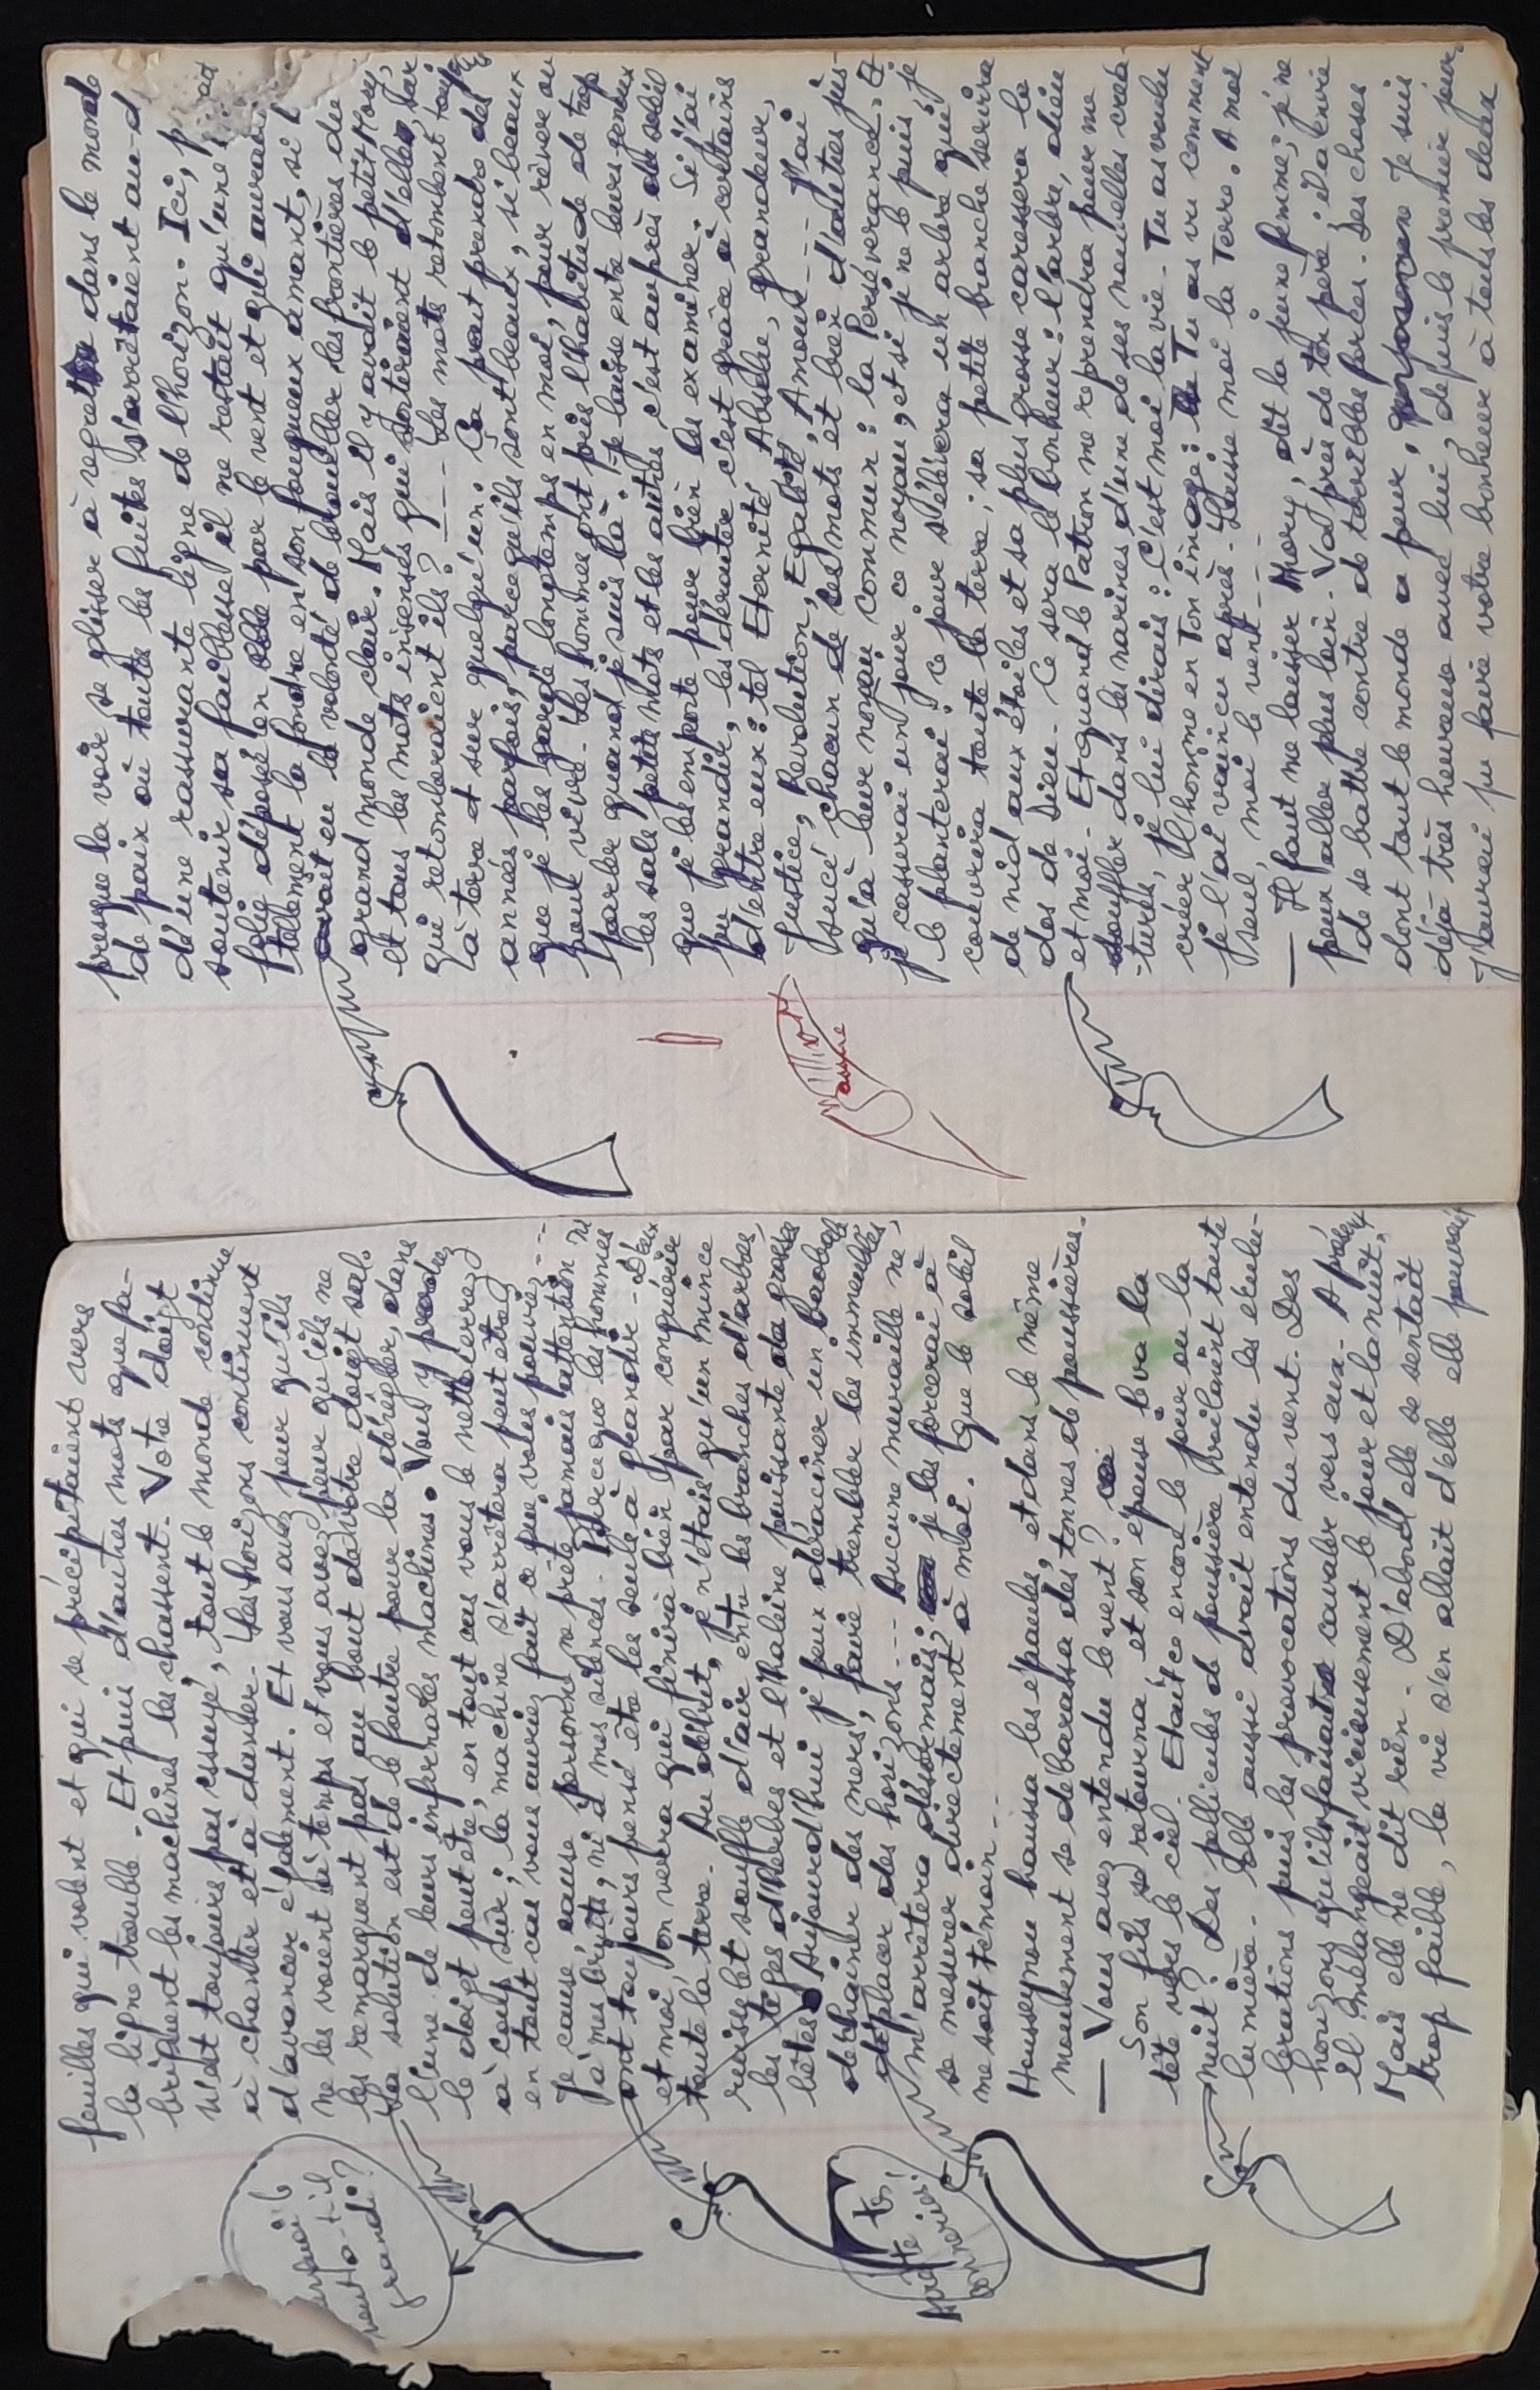 feuilles qui volent et qui se précipitaient vers
la ligne trouble. Et puis d'autres mots que fa-
briquent les machines les chassent. Votre doigt
n'est toujours pas essuyé, tout le monde continue
à chanter et à danser. Les horizons continuent
d'avancer également. Et vous avez peur qu'ils
ne les voient à temps et vous avez peur qu'ils ne
les remarquent pas au bout de votre doigt sale.
La solution est de le foutre pour la dérégler, dans
l'une de leurs infernales machines. Vous y perdrez
le doigt peut être, en tout cas vous le nettoierez
à coup sûr ; la machine s'arrêtera peut être,
en tout cas vous aurez fait ce que vous pouviez ---
Je cause, cause personne ne prête jamais attention ni
à mes bruits, ni à mes silences. Parce que les hommes
ont toujours pensé être les seuls à grandir - D'eux
et moi, on verra qui finira bien par conquérir
toute la terre. Au début, je n'étais qu'un mince
ruisselet souffle d'air entre les branches d'arbres,
les tiges d'herbes et l'haleine puissante de grosses
bêtes. Aujourd'hui je peux déraciner un baobab,
déchaîner des mers, faire trembler les immeubles,
déplacer des horizons --- Aucune muraille ne,
m'arrêtera désormais ; je les forcerai à
se mesurer directement à moi. Que le soleil
me soit témoin --
Housseynou haussa les épaules, et dans le même
mouvement se débarassa des tonnes de poussières.
— Vous avez entendu le vent ?
Son fils se retourna, et son épouse leva la
tête vers le ciel. Etait ce encore le jour ou la
nuit ? Des pellicules de poussière voilaient toute
lumière. Elle aussi avait entendu les élucu-
brations puis les provocations du vent. Des
horizons qu'ils faisait cavaler vers eux. Après
il mélangeait vicieusement le jour et la nuit.
Mais elle ne dit rien. D'abord elle se sentait
trop faible, la vie s'en allait d'elle elle pouvait
Pourquoi le
veut-a-t-il
grandi ?
Arrête tes
conneries !
presque la voir se glisser à regret dans le monde
de paix où toutes les fuites s'arrêtaient au-d
d'une rassurante ligne de l'horizon. Ici, p
soutenir sa faiblesse il ne restait qu'une
folie déposée en elle par le vent et qui aurait
tellement la fondre en son fougueux amant, si l
avait eu la volonté de brouiller les frontières du
grand monde clair. Mais il y avait le petit Mory,
et tous les mots insensés qui sortiraient d'elle, sur
qui retomberaient ils ? --- Les mots retombent toujours
à terre et sur quelqu'un. Ca peut prendre des
années parfois, parcequ'ils sont beaux, si beaux
que je les garde longtemps en moi, pour rêver ou
pour vivre. Les hommes ont pris l'habitude de trop
parler quand je suis là : je laisse entre leurs genoux
les sales petits mots et les autres c'est auprès du soleil
que je les emporte pour bien les examiner. Si j'ai
pu grandir, les dérouter c'est grâce à certains
d'entre eux : tel Eternité, Absolu, grandeur,
Justice, Revolution, Egalité, Amour --- J'ai
sucé chacun de ces mots et bien d'autres jus-
qu'à leur noyau commun : la Persévérance. Et
je casserai un jour ce noyau, et si je ne le puis, je
le planterai : ce jour s'élévera un arbre qui
couvrira toute la terre ; sa petite branche servira
de nid aux étoiles et sa plus grosse caressera le
dos de Dieu. Ce sera le bonheur : l'arbre, dieu
et moi. Et quand le Patron me reprendra pour me
souffler dans les narines d'une de ses nouvelles créa-
-tures, je lui dirais : C'est moi la vie. Tu as voulu
créer l'homme en Ton image : Tu as vu comment
je l'ai vaincu après. Laisse moi la Terre. A moi
seul, moi le vent ---
— Il faut me laisser Mory, dit la jeune femme ; j' ne
peux aller plus loin. Va près de ton père ; il a envie
de se battre contre de terribles forces. Des choses
dont tout le monde a peur, Je suis
déjà très heureuse avec lui, depuis le premier jour,
J'aurai pu faire votre bonheur à tous les deux